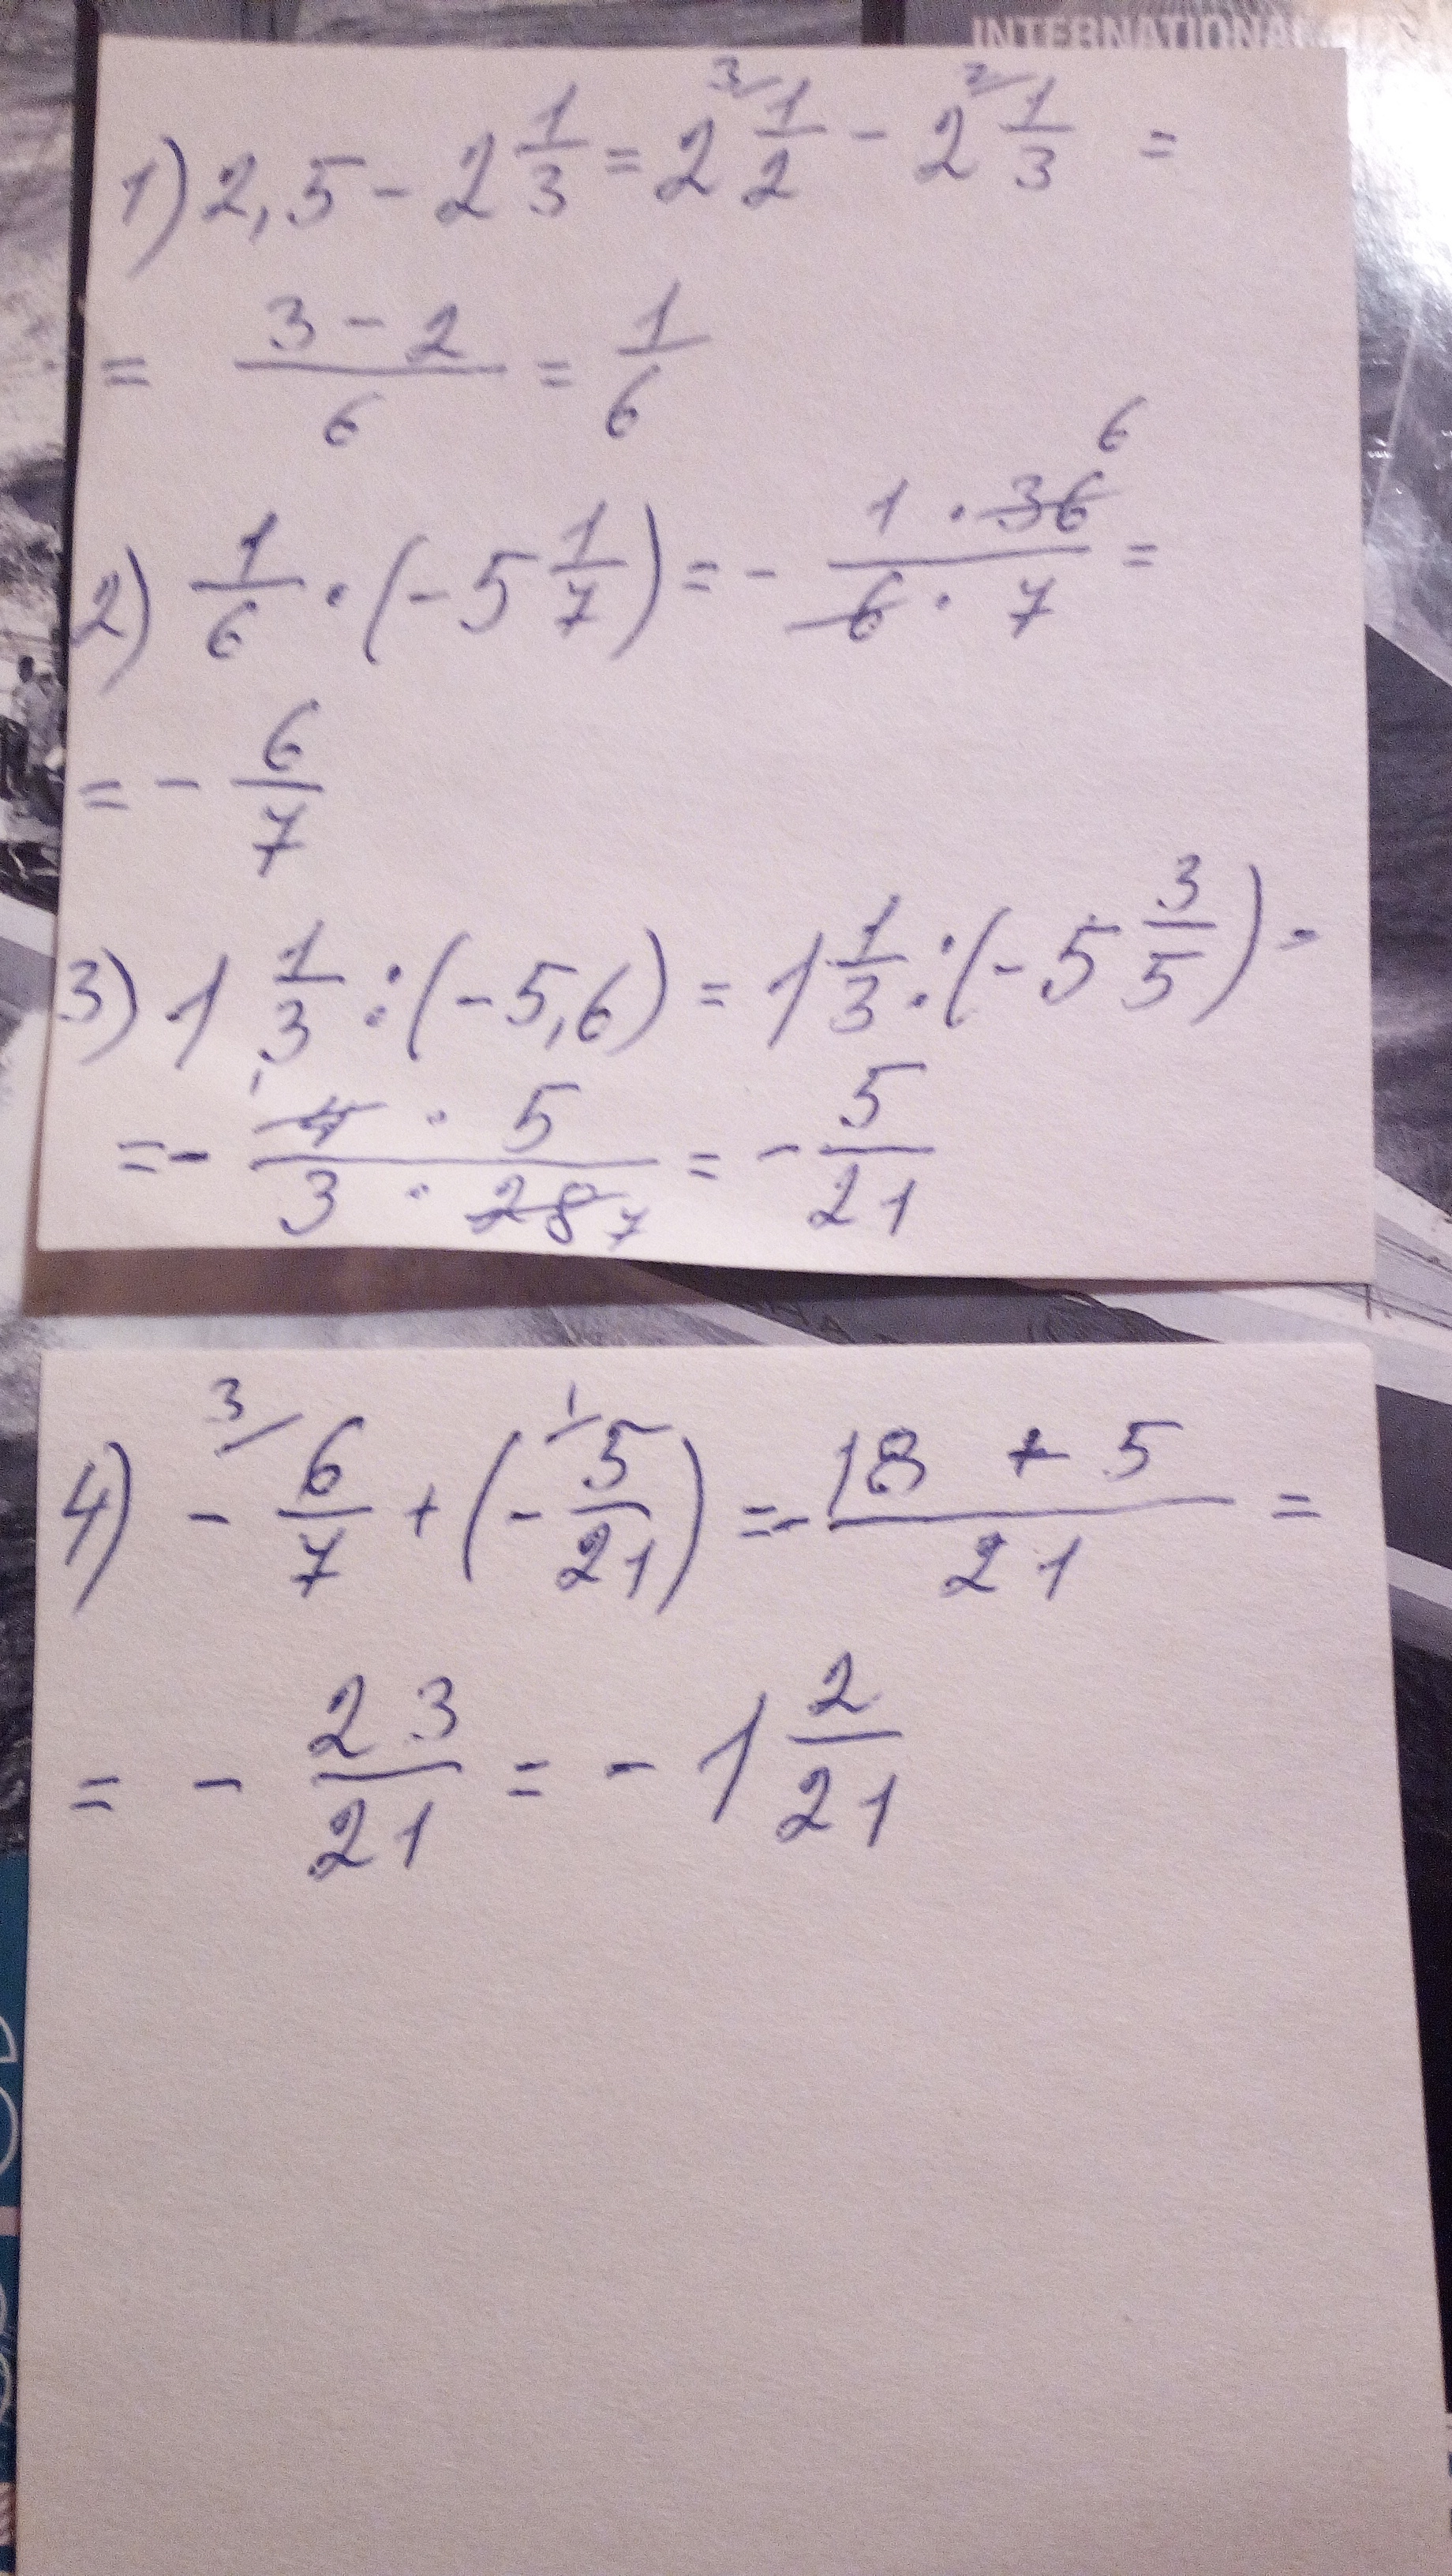 INTERNATIONAL
1) 2,5 - 2 1/3 = 2 ³⁄ 1/2 - 2 ²⁄ 1/3 =
= (3 - 2)/6 = 1/6
2) 1/6 · (-5 1/7) = - (1 · 36 6)/(6 · 7) =
= - 6/7
3) 1 1/3 : (-5,6) = 1 1/3 : (-5 3/5) =
= - (4 1 · 5)/(3 · 28 7) = - 5/21
4) - ³⁄ 6/7 + (- ¹⁄ 5/21) = - (18 + 5)/21 =
= - 23/21 = - 1 2/21